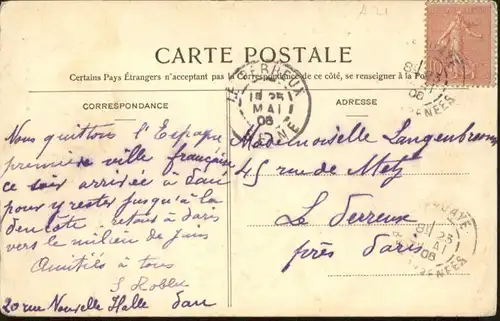 A 21
CARTE POSTALE
Certains Pays Étrangers n'acceptant pas la Correspondance de ce côté, se renseigner à la Po
CORRESPONDANCE
ADRESSE
Nous quittons l'Espagne
première ville française
ce soir arrivée à Pau
pour y rester jusqu'à la
Pentecôte retour à Paris
vers le milieu de Juin
Amitiés à tous
20 rue Nouvelle Halle Pau
Mademoiselle Langenbronn
45 rue de Metz
Le Perreux
près Paris
25
MAI
06
25
06
PYRENEES